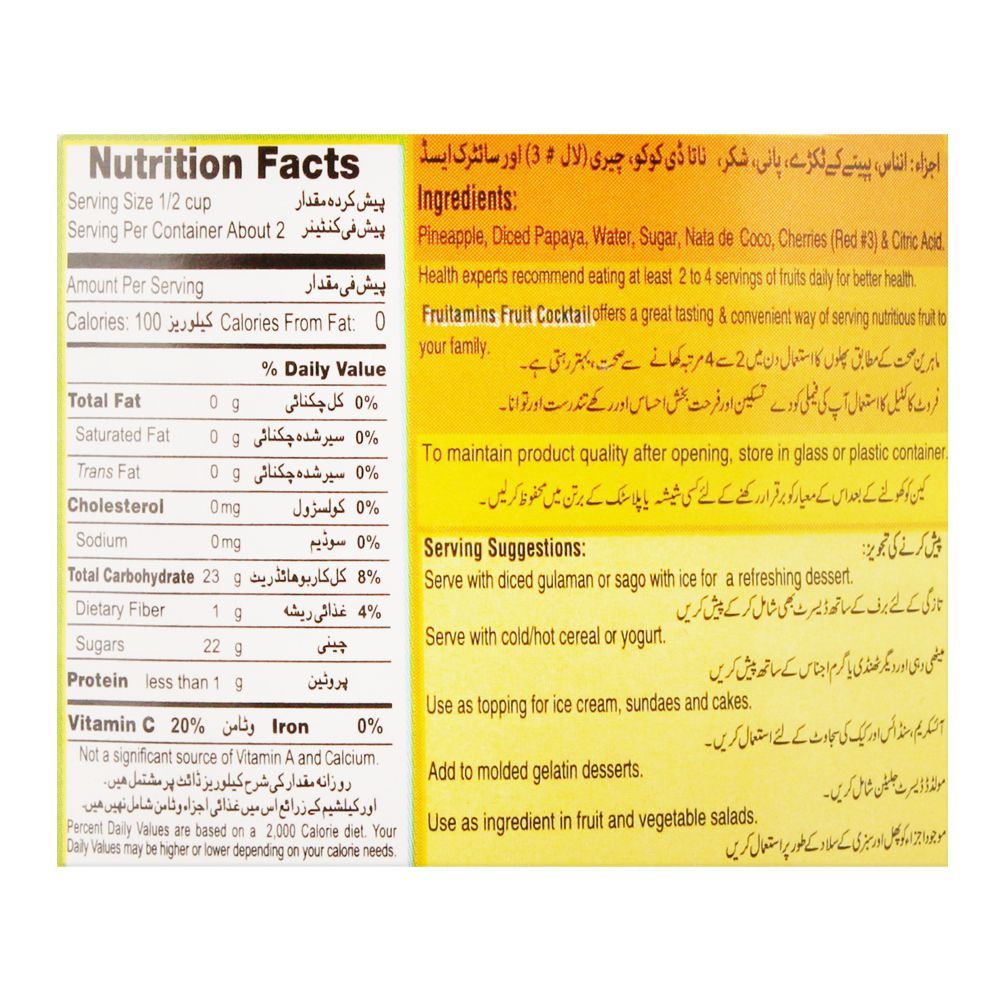 Nutrition Facts
Serving Size 1/2 cup پیش کردہ مقدار
Serving Per Container About 2 پیش فی کنٹینر
Amount Per Serving پیش فی مقدار
Calories: 100 کیلوریز Calories From Fat: 0
% Daily Value
Total Fat 0 g کل چکنائی 0%
Saturated Fat 0 g سیر شدہ چکنائی 0%
Trans Fat 0 g سیر شدہ چکنائی 0%
Cholesterol 0 mg کولسزول 0%
Sodium 0 mg سوڈیم 0%
Total Carbohydrate 23 g کل کاربوھائڈریٹ 8%
Dietary Fiber 1 g غذائی ریشہ 4%
Sugars 22 g چینی
Protein less than 1 g پروٹین
Vitamin C 20% وٹامن Iron 0%
Not a significant source of Vitamin A and Calcium.
روزانہ مقدار کی شرح کیلوریز ڈائٹ پر مشتمل ھیں۔
اور کیلشیم کے زرائع اس میں غذائی اجزاء وٹامن شامل نہیں ھیں۔
Percent Daily Values are based on a 2,000 Calorie diet. Your
Daily Values may be higher or lower depending on your calorie needs.
اجزاء: انناس، پپیتے کے ٹکڑے، پانی، شکر، ناتا ڈی کوکو، چیری (لال # 3) اور سائٹرک ایسڈ
Ingredients:
Pineapple, Diced Papaya, Water, Sugar, Nata de Coco, Cherries (Red #3) & Citric Acid.
Health experts recommend eating at least 2 to 4 servings of fruits daily for better health.
Fruitamins Fruit Cocktail offers a great tasting & convenient way of serving nutritious fruit to
your family.
ماہرین صحت کے مطابق پھلوں کا استعمال دن میں 2 سے 4 مرتبہ کھانے سے صحت بہتر رہتی ہے۔
فروٹ کاکٹیل کا استعمال آپ کی فیملی کو دے تسکین اور فرحت بخش احساس اور رکھے تندرست اور توانا۔
To maintain product quality after opening, store in glass or plastic container.
کین کو کھولنے کے بعد اس کے معیار کو برقرار رکھنے کے لئے کسی شیشہ یا پلاسٹک کے برتن میں محفوظ کرلیں۔
Serving Suggestions: پیش کرنے کی تجویز:
Serve with diced gulaman or sago with ice for a refreshing dessert.
تازگی کے لئے برف کے ساتھ ڈیسرٹ بھی شامل کر کے پیش کریں
Serve with cold/hot cereal or yogurt.
میٹھی دہی اور دیگر ٹھنڈی یا گرم اجناس کے ساتھ پیش کریں
Use as topping for ice cream, sundaes and cakes.
آئسکریم، سنڈائس اور کیک کی سجاوٹ کے لئے استعمال کریں۔
Add to molded gelatin desserts.
مولڈڈ ڈیسرٹ جلیٹن شامل کریں۔
Use as ingredient in fruit and vegetable salads.
موجود اجزاء کو پھل اور سبزی کے سلاد کے طور پر استعمال کریں